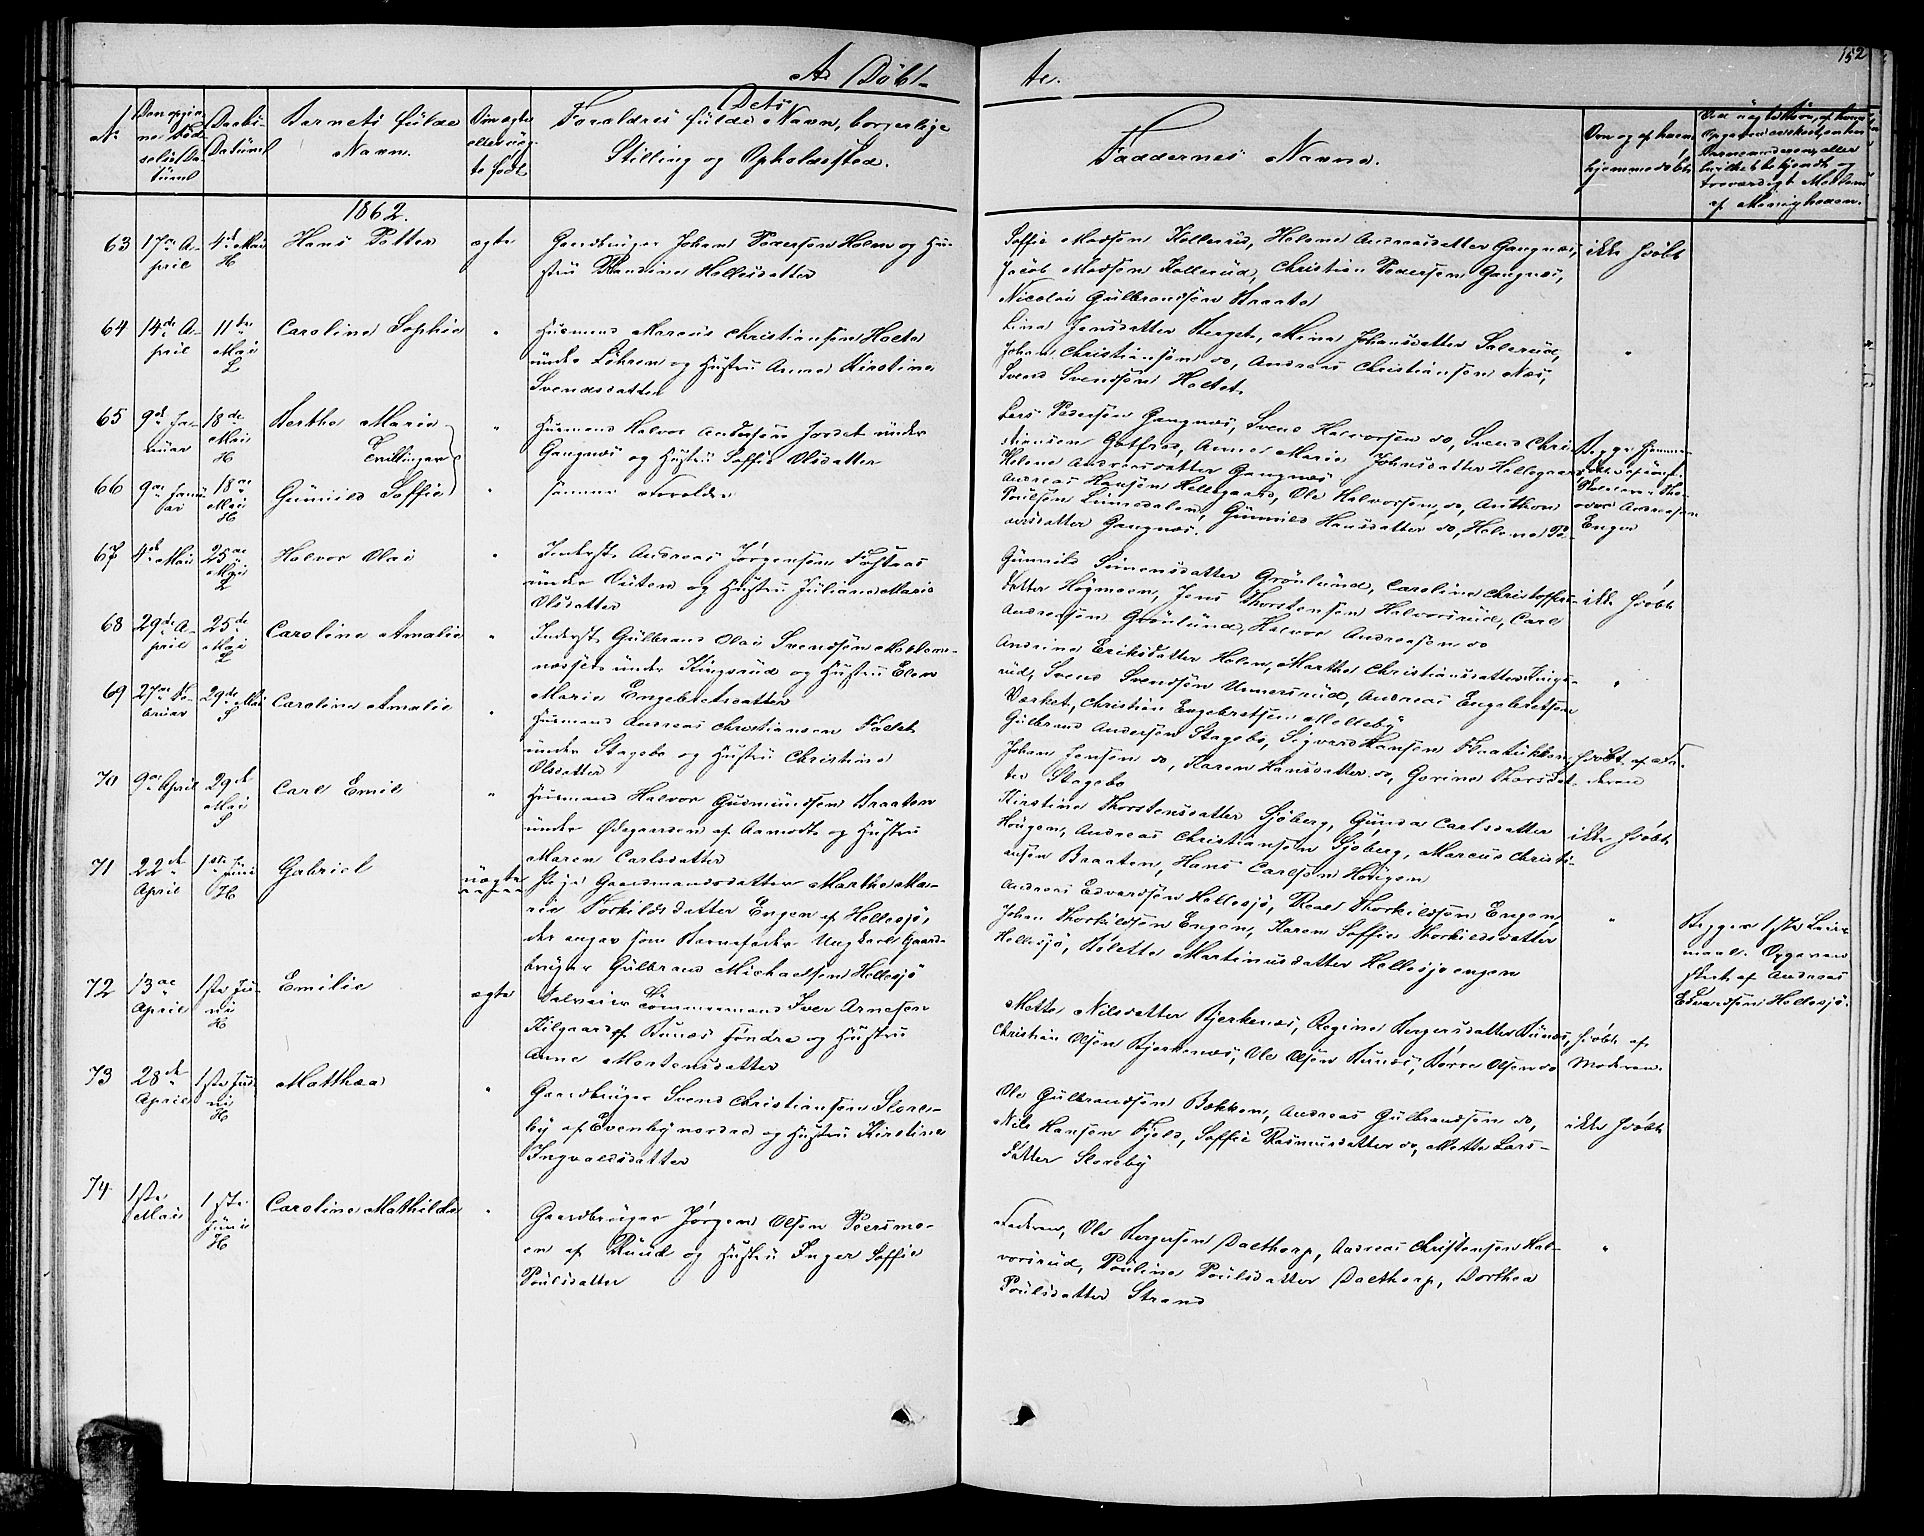 A. Döbte. 152
No
Barnets fulde
Navn.
Dets
Forældres fulde Navn, borgerlige
Stilling og Opholdssted.
Faddernes Navne.
1862.
63 17de April 4de Mai H Hans Petter ægte
Gaardbruger Johan Pedersen Holm og Hustru
Hellesdatter
Soffie Madsen Kollerud, Helene Andreasdatter Gangnæs,
Jacob Madsen Kollerud, Christian Pedersen Gangnæs,
Nicolai Gulbrandsen Braate
ikke hjdøbt
64 14de April 11te Mai L Caroline Sophie "
Husmand Marcus Christiansen Holte
under Löhren og Hustru Anne Kirstine
Svendsdatter
Lina Jensdatter Berget, Mina Johansdatter Salerud,
Johan Christiansen do, Andreas Christiansen Næs,
Svend Svendsen Holtet.
"
65 9de Januar 18de Mai H Berthe Marie "
Tvillinger
Husmand Halvor Andersen Jordet under
Gangnæs og Hustru Soffie Olsdatter
Lars Pedersen Gangnæs, Svend Halvorsen do, Svend Christiansen
Gotfred, Anne Marie Johnsdatter Hellegaard,
Helene Andreasdatter Gangnæs.
66 9de Januar 18de Mai H Gunnild Soffie "
samme Forældre
Andreas Hansen Hellegaard, Ole Halvorsen do, Anthon
Poulsen Linnedalen, Gunnild Hansdatter do, Helene
Gangnæs.
Begge hjemme
Andreasen
Enger
67 4de Mai 25de Mai L Halvor Olai "
Inderst Andreas Jørgensen Fosteraas
under Outen og Hustru Juliane Marie
Olsdatter
Gunnild Simensdatter Grönlund, Caroline Christoffersdatter
Högmoen, Jens Thorstensen Halvorsrud, Carl
Andersen Grönlund, Halvor Andreasen do
ikke hjdøbt
68 29de April 25de Mai L Caroline Amalie "
Inderst Gulbrand Olai Svendsen
under Kingsrud og Hustru Elen
Marie Engebretsdatter
Andrine Eriksdatter Holm, Marthe Christiansdatter
Svend Svendsen Unnersrud, Andreas Engebretsen
Værket, Christian Engebretsen Melleby
"
69 27de Februar 29de Mai S Caroline Amalie "
Husmand Andreas Christiansen Faldet
under Stagebø og Hustru Christine
Olsdatter
Gulbrand Andersen Stagebø, Sigvard Hansen
Johan Jensen do, Karen Hansdatter do, Gorine
Stagebø
hjdøbt af
70 9de April 29de Mai S Carl Emil "
Husmand Halvor Gudmundsen Braaten
under Ødegaarden af Aamodt og Hustru
Maren Carlsdatter
Kirstine Thorstensdatter Sjöberg, Gunda Carlsdatter
Hougen, Andreas Christiansen Sjöberg, Marcus Christiansen
Braaten, Hans Carlsen Hougen
ikke hjdøbt
71 22de April 1ste Juni H Gabriel uægte
Pige Gaardmandsdatter Marthe Marie
Torkildsdatter Engen af Hellesjö,
der angav som Barnefader Ungkarl Gaardbruger
Gulbrand Michaelsen Hellesjö
Andreas Edvardsen Hellesjö, Thorkildsen Engen,
Johan Thorkildsen Engen, Karen Soffie Thorkildsdatter
Hellesjö, Bolette Martinusdatter Hellesjöengen
"
Begges 1ste Leiermaal.
Opgaven
af Andreas
Edvardsen Hellesjö.
72 13de April 1ste Juni H Emilie ægte
Selveier Tömmermand Iver Arnesen
Kilgaard af Bunæs søndre og Hustru
Anne Mortensdatter
Mette Nilsdatter Bjerkenæs, Regine Bergersdatter Bunæs,
Christian Olsen Bjerkenæs, Ole Olsen Bunæs, Børre Olsen do
hjdøbt af
Moderen.
73 28de April 1ste Juni H Matthæa "
Gaardbruger Svend Christiansen Sloreby
af Evenby nordre og Hustru Kirstine
Ingvaldsdatter
Ole Gulbrandsen Bækken, Andreas Gulbrandsen do,
Nils Hansen Fjeld, Soffie Rasmusdatter do, Mette Larsdatter
Sloreby
ikke hjdøbt
74 1ste Mai 1ste Juni H Caroline Mathilde "
Gaardbruger Jørgen Olsen Peersmoen
af Ruud og Hustru Inger Soffie
Poulsdatter
Faderen, Ole Bergersen Dalthorp, Andreas Christensen Halvorsrud,
Pouline Poulsdatter Dalthorp, Dorthea
Poulsdatter Strand
"